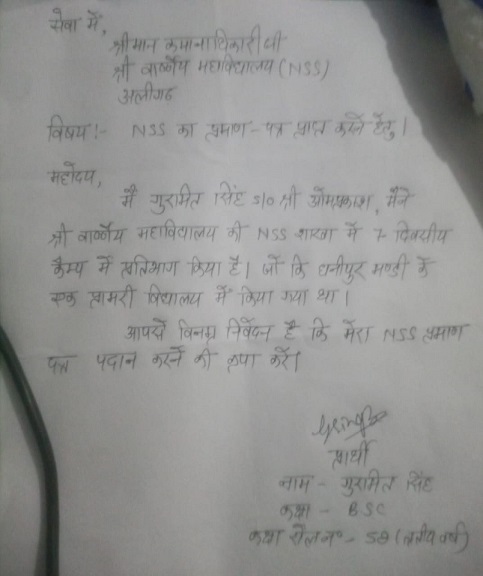 सेवा में,
श्रीमान कमानाधिकारी जी
श्री वार्ष्णेय महाविद्यालय (NSS)
अलीगढ
विषय :- NSS का प्रमाण-पत्र प्राप्त करने हेतु।
महोदय,
मैं गुरामित सिंह S/o श्री ओमप्रकाश, मैंने
श्री वार्ष्णेय महाविद्यालय की NSS शाखा में 7-दिवसीय
कैम्प में प्रतिभाग किया है। जो कि धनीपुर मण्डी के
एक प्रामरी विद्यालय में किया गया था।
आपसे विनम्र निवेदन है कि मेरा NSS प्रमाण
पत्र पदान करने की कृपा करें।
प्रार्थी
नाम - गुरामित सिंह
कक्षा - BSC
कक्षा रोल न० - 58 (तृतीय वर्ष)